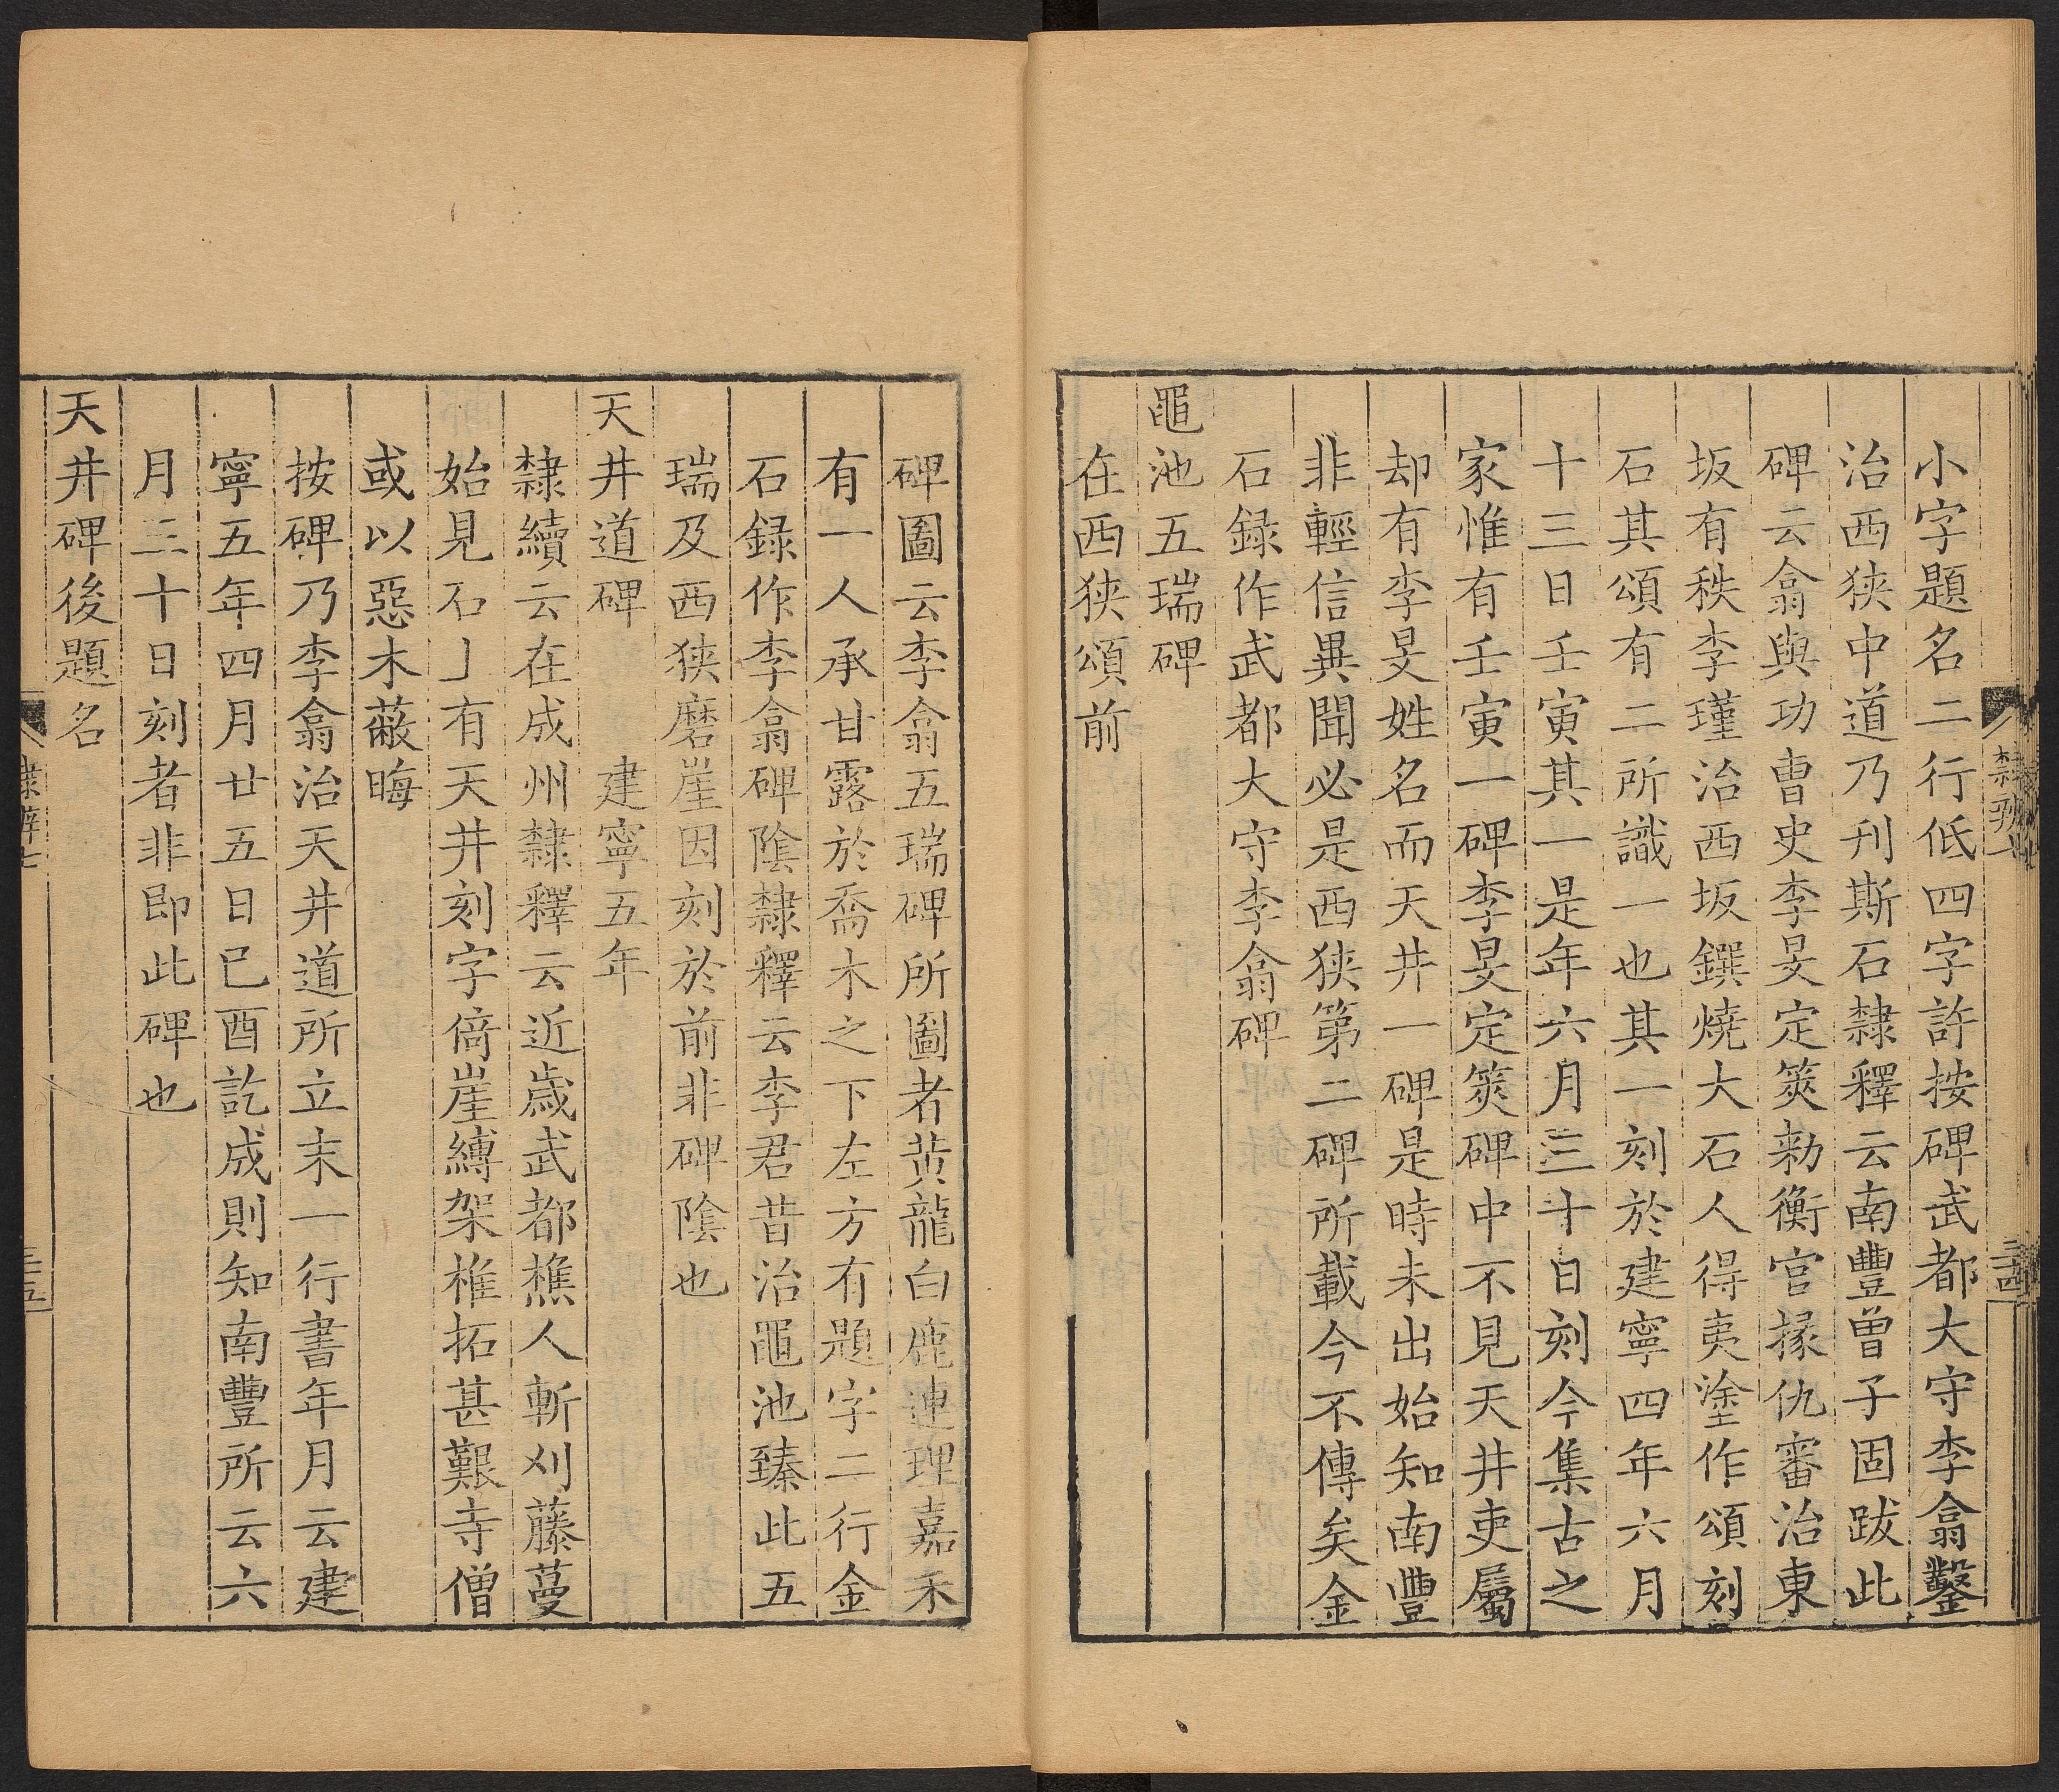 小字題名二行低四字許按碑武都大守李翕鑿
治西狹中道乃刊斯石隸釋云南豐曾子固跋此
碑云翕與功曹史李旻定筴勑衡官掾仇審治東
坂有秩李瑾治西坂鐉燒大石人得夷塗作頌刻
石其頌有二所識一也其一刻於建寧四年六月
十三日壬寅其一是年六月三十日刻今集古之
家惟有壬寅一碑李旻定筴碑中不見天井吏屬
却有李旻姓名而天井一碑是時未出始知南豐
非輕信異聞必是西狹第二碑所載今不傳矣金
石録作武都大守李翕碑
黽池五瑞碑
在西狹頌前
碑圖云李翕五瑞碑所圖者黃龍白鹿連理嘉禾
有一人承甘露於喬木之下左方有題字二行金
石録作李翕碑隂隸釋云李君昔治黽池臻此五
瑞及西狹磨崖因刻於前非碑隂也
天井道碑 建寧五年
隸續云在成州隸釋云近歲武都樵人斬刈藤蔓
始見石亅有天井刻字倚崖縛架椎拓甚艱寺僧
或以惡木蔽晦
按碑乃李翕治天井道所立末一行書年月云建
寧五年四月廿五日已酉訖成則知南豐所云六
月三十日刻者非即此碑也
天井碑後題名
隸辨七
三五